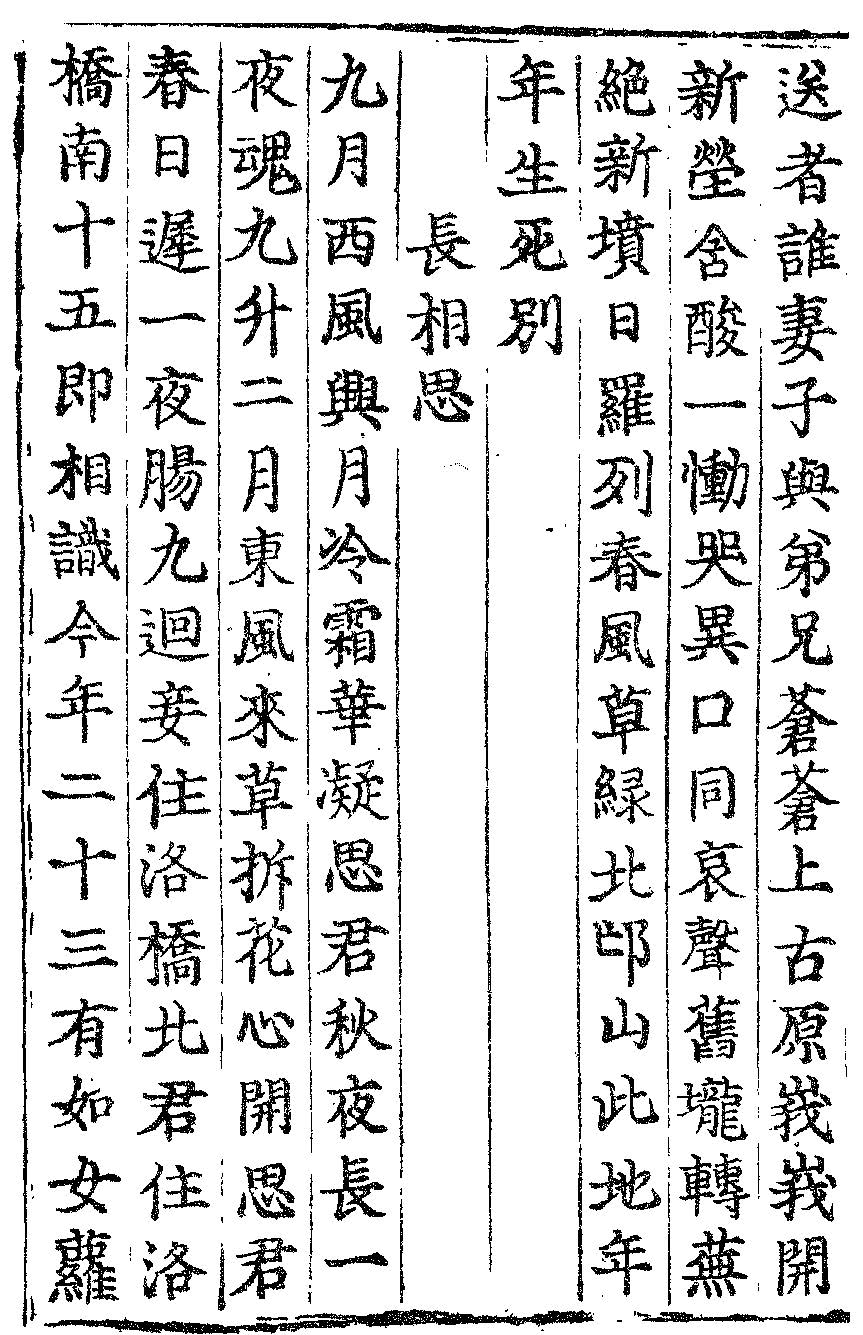 送者誰妻子與弟兄蒼蒼上古原峩峩開
新塋含酸一慟哭異口同哀聲舊壠轉蕪
絶新墳日羅列春風草緑北邙山此地年
年生死別
長相思
九月西風興月冷霜華凝思君秋夜長一
夜魂九升二月東風來草拆花心開思君
春日遲一夜腸九迴妾住洛橋北君住洛
橋南十五即相識今年二十三有如女蘿